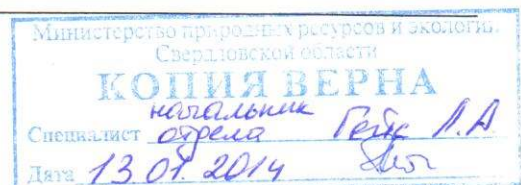 Министерство природных ресурсов и экологии
Свердловской области
КОПИЯ ВЕРНА
начальник
Специалист отдела Л.А
Дата 13 01. 2014